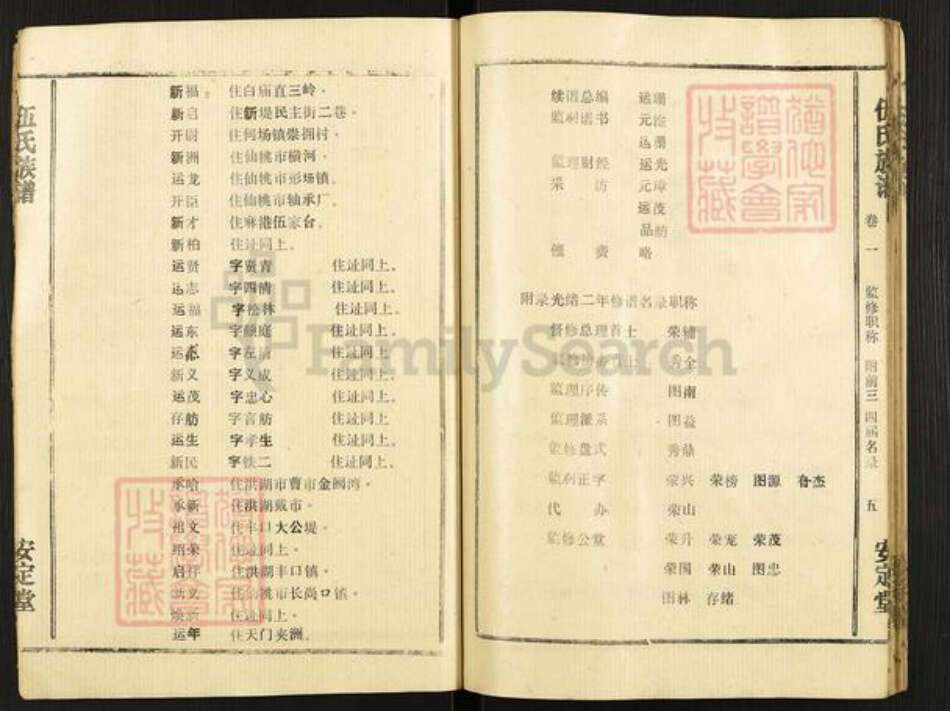 伍氏族谱
安定堂
新福 住白庙直三岭。
新启 住新堤民主街二巷。
开尉 住何场镇崇拥村。
新洲 住仙桃市横河。
运龙 住仙桃市形场镇。
开臣 住仙桃市轴承厂。
新才 住麻港伍家台。
新柏 住址同上。
运贤 字贤青 住址同上。
运志 字四清 住址同上。
运福 字松林 住址同上。
运东 字 庭 住址同上。
运 字左 住址同上
新义 字义成 住址同上。
运茂 字忠心 住址同上
存舫 字言舫 住址同上。
运生 字孝生 住址同上。
新民 字铁二 住址同上。
承哈 住洪湖市曹市金阙湾。
承新 住洪湖戴市。
祖文 住丰口大公堤。
绍荣 住址同上。
启 住洪湖丰口镇。
住仙桃市长尚口镇。
住址同上。
运年 住天门夹洲。
续谱总编 运珊
监利谱书 元淦
运
监理财经 运光
采访 元璋
运茂
品舫
经费 略
附录光绪二年修谱名录职称
督修总理首士 荣辅
首士 秀全
监理序传 图南
监理派系 图益
监修盘式 秀鼎
监刻正字 荣兴 荣榜 图源 春杰
代办 荣山
监修公堂 荣升 荣宠 荣茂
荣国 荣山 图忠
图林 存绪
伍氏族谱
卷一
监修职称 附前三四届名录
五
安定堂
FamilySearch